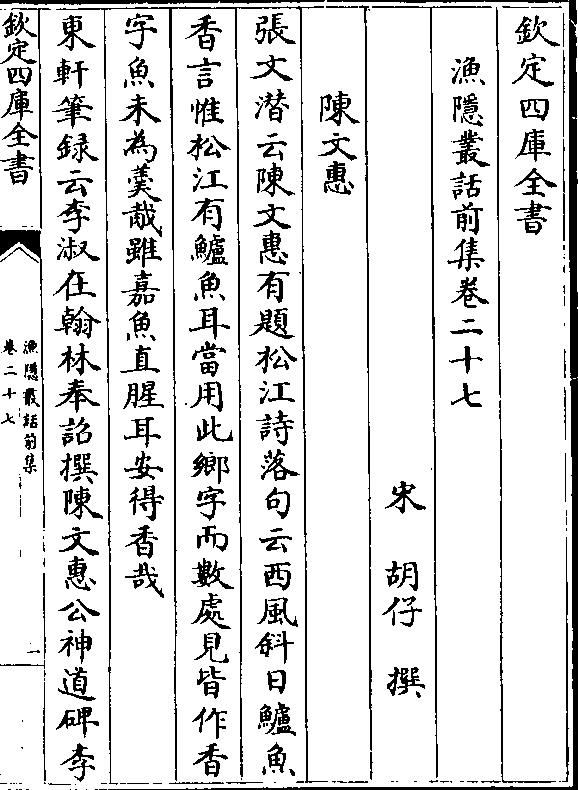 欽定四庫全書
漁隱叢話前集卷二十七
宋 胡仔 撰
陳文惠
張文潛云陳文惠有題松江詩落句云西風斜日鱸魚
香言惟松江有鱸魚耳當用此鄉字而數處見皆作香
字魚未為羮哉雖嘉魚直腥耳安得香哉
東軒筆録云李淑在翰林奉詔撰陳文惠公神道碑李
欽定四庫全書
漁隱叢話前集
卷二十七
一